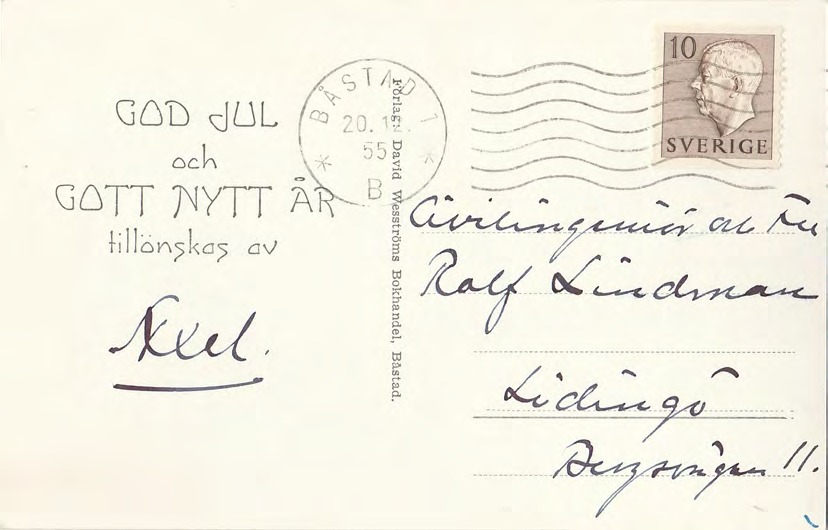 GOD JUL
och
GOTT NYTT ÅR
tillönskas av
Axel.
BÅSTAD 1
20.12.
55
B
Förlag: David Wesströms Bokhandel, Båstad.
10
SVERIGE
Civilingeniör och Fru
Rolf Lindman
Lidingö
Bergsvägen 11.